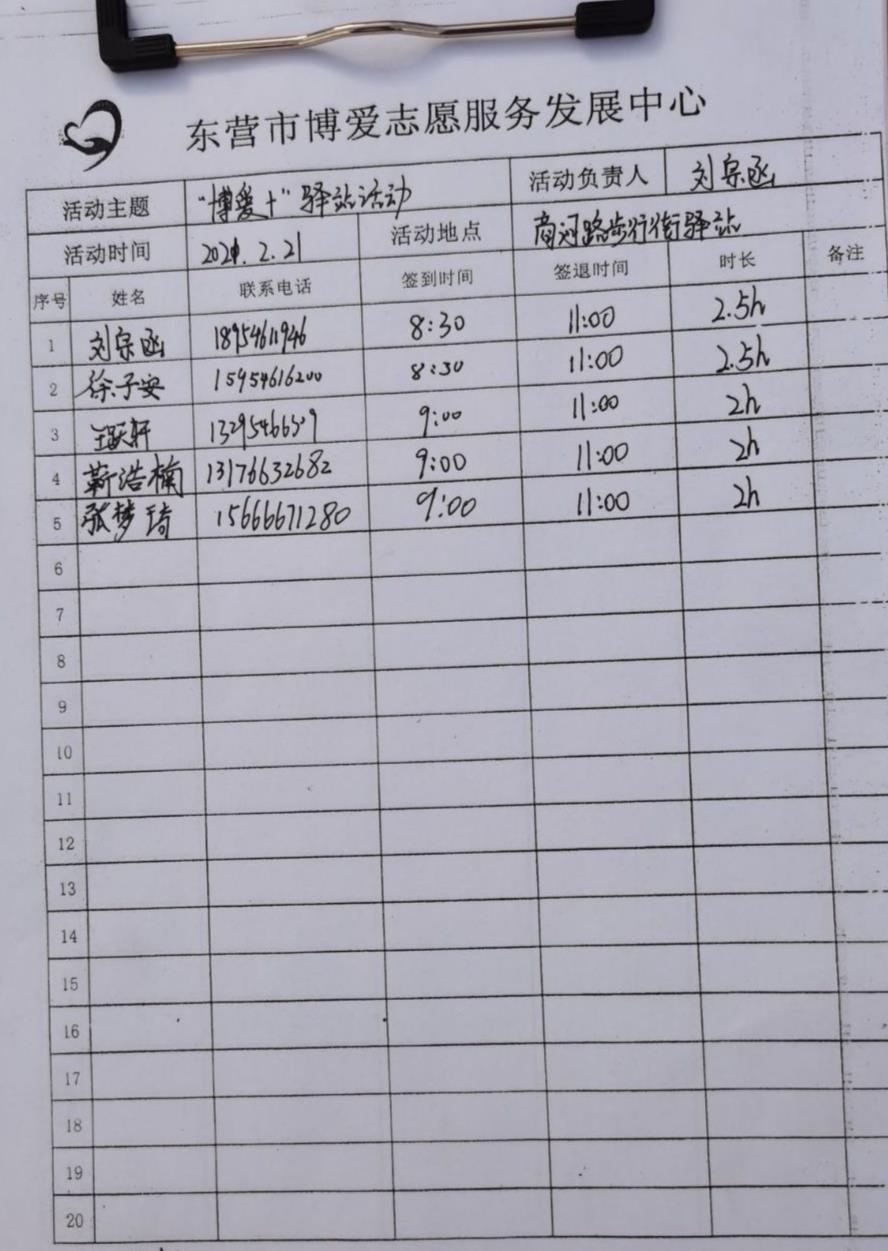 东营市博爱志愿服务发展中心
活动主题 "博爱+"驿站活动 活动负责人 刘宗函
活动时间 2021.2.21 活动地点 商河路步行街驿站
序号 姓名 联系电话 签到时间 签退时间 时长 备注
1 刘宗函 18954611946 8:30 11:00 2.5h
2 徐子安 15954616200 8:30 11:00 2.5h
3 9:00 11:00 2h
4 靳浩楠 13176632682 9:00 11:00 2h
5 张梦琦 15666671280 9:00 11:00 2h
6
7
8
9
10
11
12
13
14
15
16
17
18
19
20